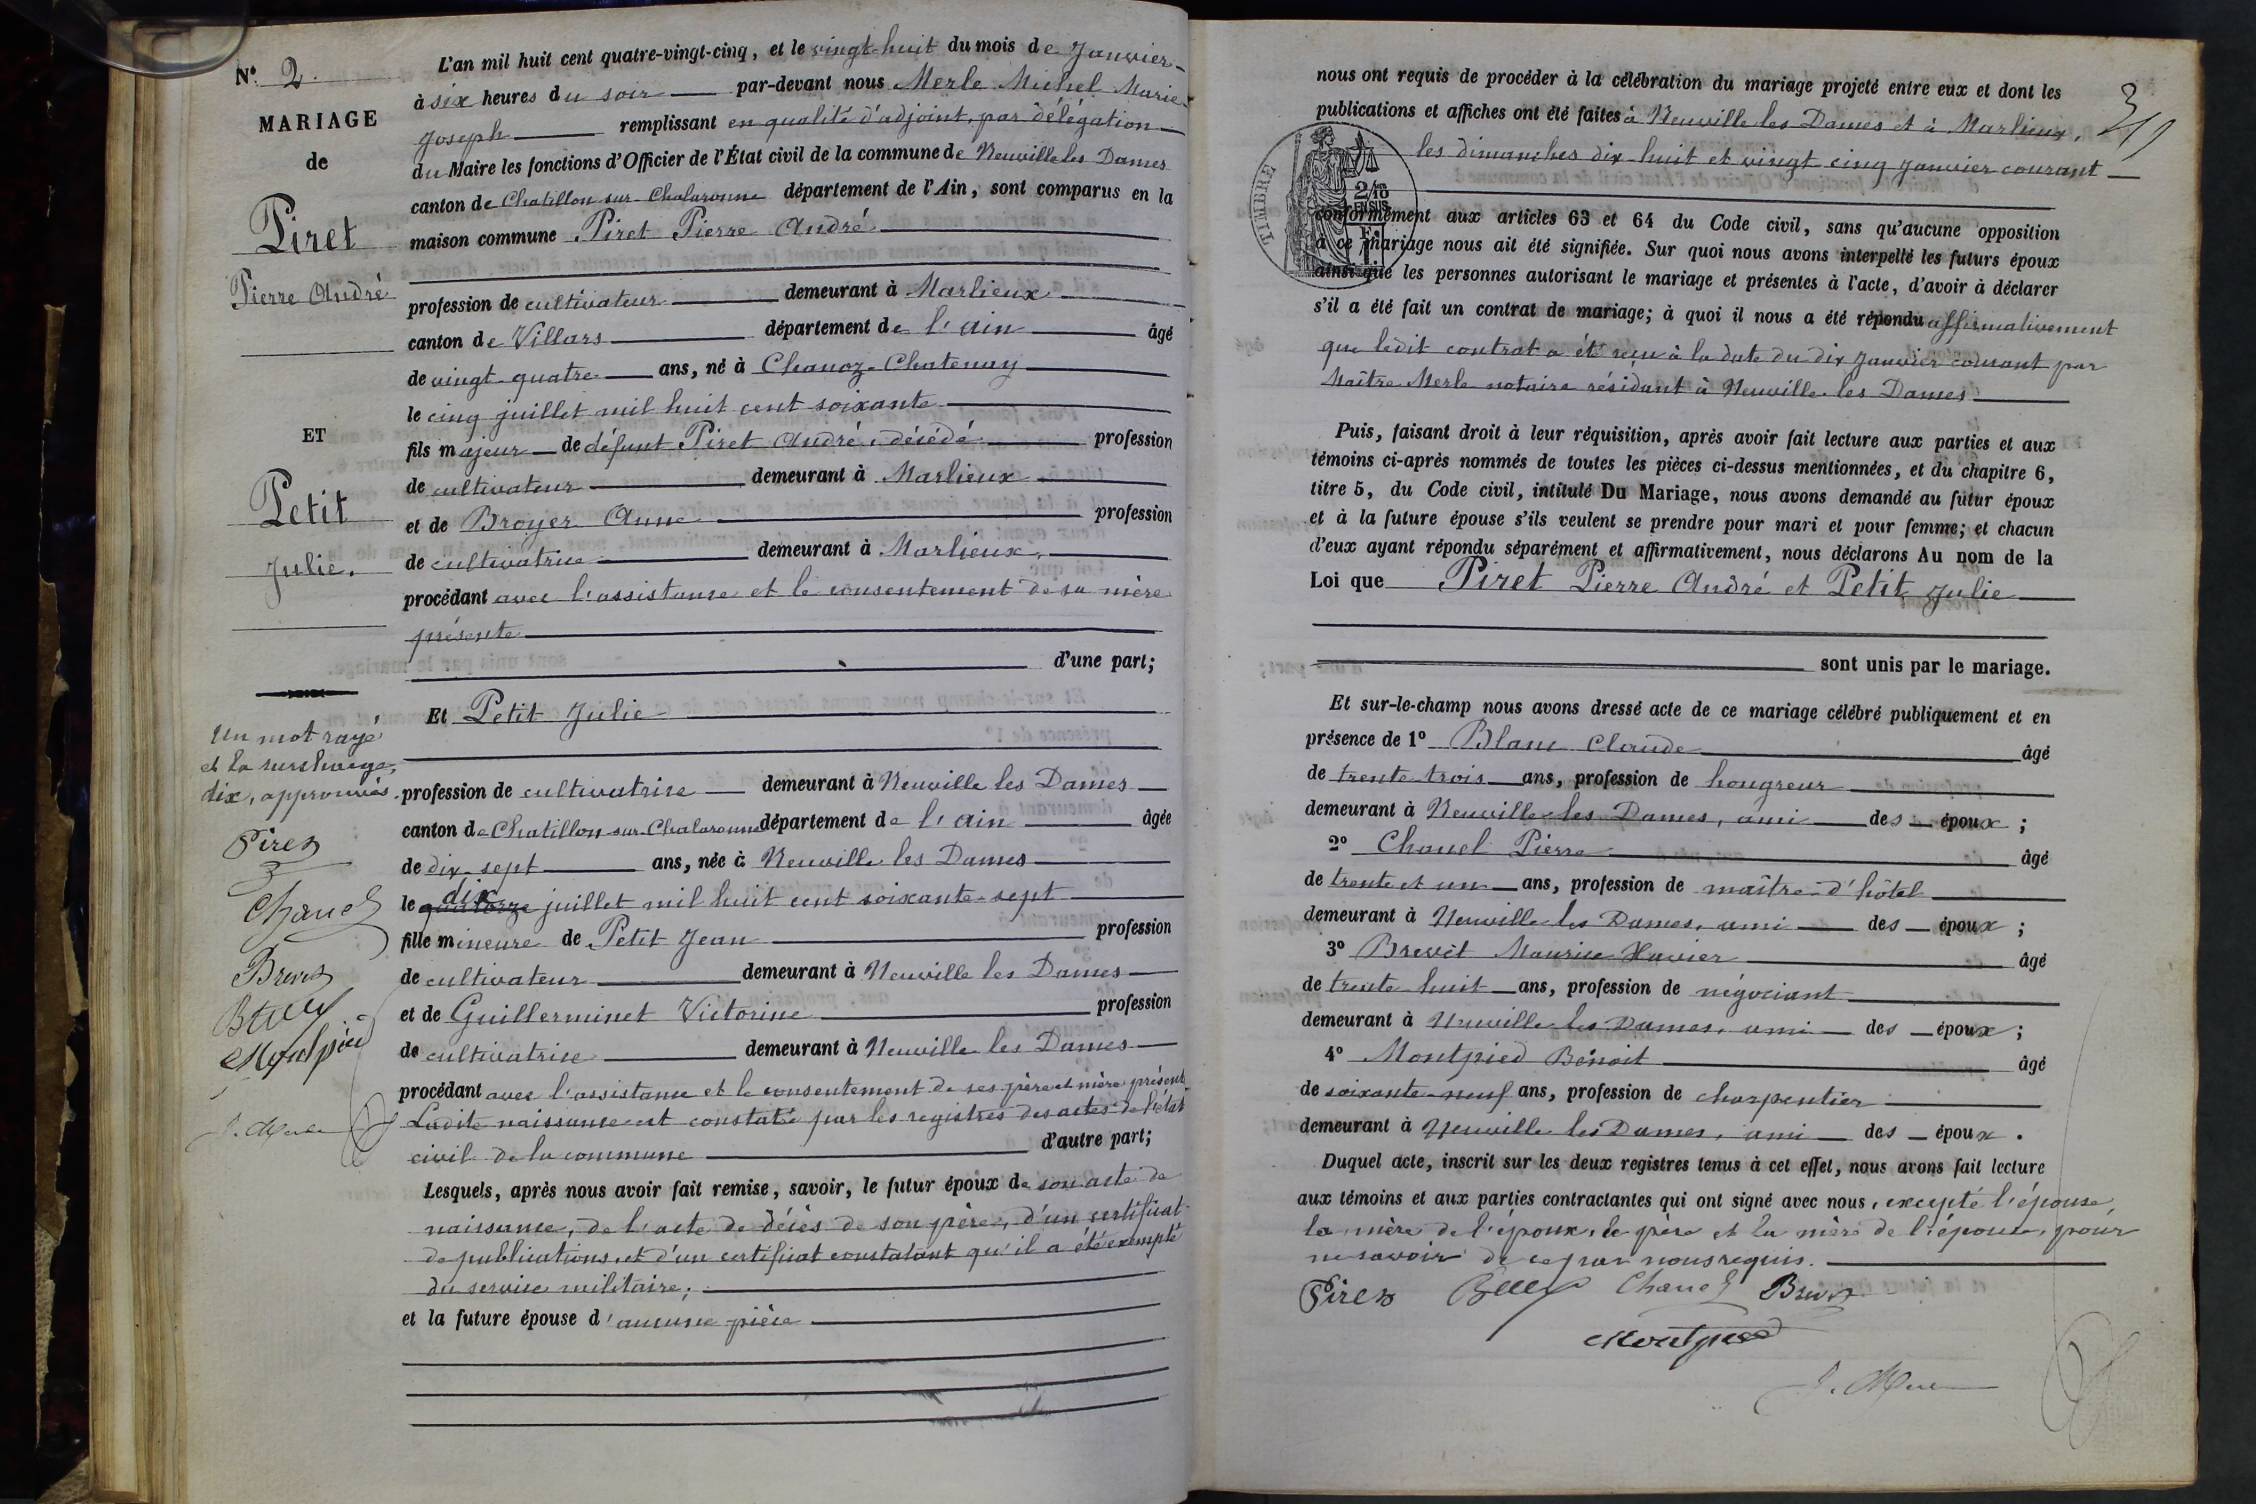 N° 2.
MARIAGE
de
Piret
Pierre André
ET
Petit
Julie.
Un mot rayé
et la surcharge,
dix, approuvés.
Piret
Chanel
Brevet
Montpied
J. Merle
L'an mil huit cent quatre-vingt-cinq, et le vingt-huit du mois de Janvier
à six heures du soir par-devant nous Merle Michel Marie
Joseph remplissant en qualité d'adjoint, par délégation
du Maire les fonctions d'Officier de l'État civil de la commune de Neuville les Dames
canton de Chatillon-sur-Chalaronne département de l'Ain, sont comparus en la
maison commune Piret Pierre André
profession de cultivateur demeurant à Marlieux
canton de Villars département de l'ain âgé
de vingt-quatre ans, né à Chanoz-Chatenay
le cinq juillet mil huit cent soixante
fils majeur de défunt Piret André, décédé profession
de cultivateur demeurant à Marlieux
et de Broyer Anne profession
de cultivatrice demeurant à Marlieux,
procédant avec l'assistance et le consentement de sa mère
présente
d'une part;
Et Petit Julie
profession de cultivatrice demeurant à Neuville les Dames
canton de Chatillon-sur-Chalaronne département de l'ain âgée
de dix-sept ans, née à Neuville les Dames
dix
le quatorze juillet mil huit cent soixante-sept
fille mineure de Petit Jean profession
de cultivateur demeurant à Neuville les Dames
et de Guillerminet Victorine profession
de cultivatrice demeurant à Neuville les Dames
procédant avec l'assistance et le consentement de ses père et mère présents
Ladite naissance est constatée par les registres des actes de l'état
civil de la commune d'autre part;
Lesquels, après nous avoir fait remise, savoir, le futur époux de son acte de
naissance, de l'acte de décès de son père, d'un certificat
de publications, et d'un certificat constatant qu'il a été exempté
du service militaire;
et la future épouse d'aucune pièce
nous ont requis de procéder à la célébration du mariage projeté entre eux et dont les
publications et affiches ont été faites à Neuville les Dames et à Marlieux,
les dimanches dix-huit et vingt cinq janvier courant
TIMBRE
2/10
EN SUS
conformément aux articles 63 et 64 du Code civil, sans qu'aucune opposition
à ce mariage nous ait été signifiée. Sur quoi nous avons interpellé les futurs époux
ainsi que les personnes autorisant le mariage et présentes à l'acte, d'avoir à déclarer
s'il a été fait un contrat de mariage; à quoi il nous a été répondu affirmativement
que ledit contrat a été reçu à la date du dix Janvier courant par
Maître Merle notaire résidant à Neuville les Dames
Puis, faisant droit à leur réquisition, après avoir fait lecture aux parties et aux
témoins ci-après nommés de toutes les pièces ci-dessus mentionnées, et du chapitre 6,
titre 5, du Code civil, intitulé Du Mariage, nous avons demandé au futur époux
et à la future épouse s'ils veulent se prendre pour mari et pour femme; et chacun
d'eux ayant répondu séparément et affirmativement, nous déclarons Au nom de la
Loi que Piret Pierre André et Petit Julie
sont unis par le mariage.
Et sur-le-champ nous avons dressé acte de ce mariage célébré publiquement et en
présence de 1° Blanc Claude âgé
de trente trois ans, profession de hongreur
demeurant à Neuville les Dames, ami des époux;
2° Chanel Pierre âgé
de trente et un ans, profession de maître d'hôtel
demeurant à Neuville les Dames, ami des époux;
3° Brevet Maurice Xavier âgé
de trente huit ans, profession de négociant
demeurant à Neuville les Dames, ami des époux;
4° Montpied Benoit âgé
de soixante-neuf ans, profession de charpentier
demeurant à Neuville les Dames, ami des époux.
Duquel acte, inscrit sur les deux registres tenus à cet effet, nous avons fait lecture
aux témoins et aux parties contractantes qui ont signé avec nous, excepté l'épouse,
la mère de l'époux, le père et la mère de l'épouse, pour
ne savoir de ce par nous requis.
Piret Chanel Brevet
Montpied
J. Merle